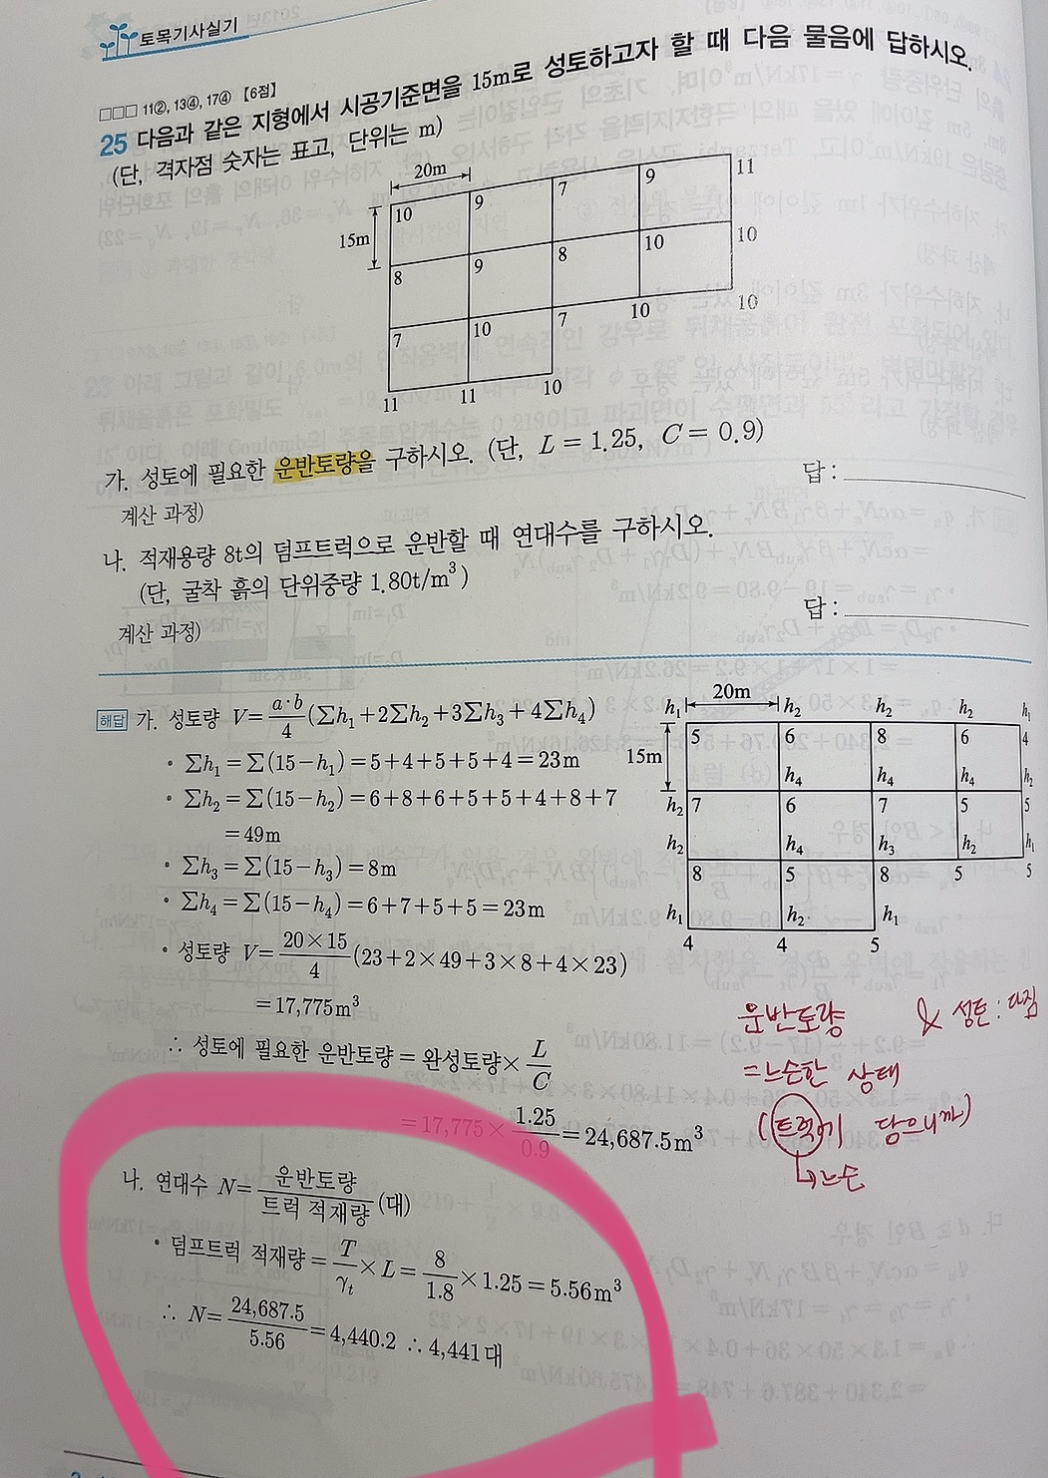 토목기사실기
□□□ 11②, 13④, 17④ 【6점】
25 다음과 같은 지형에서 시공기준면을 15m로 성토하고자 할 때 다음 물음에 답하시오.
(단, 격자점 숫자는 표고, 단위는 m)
20m
15m
10 9 7 9 11
8 9 8 10 10
7 10 7 10 10
11 11 10
가. 성토에 필요한 운반토량을 구하시오. (단, L = 1.25, C = 0.9)
계산 과정)
답 :
나. 적재용량 8t의 덤프트럭으로 운반할 때 연대수를 구하시오.
(단, 굴착 흙의 단위중량 1.80t/m³)
계산 과정)
답 :
해답 가. 성토량 V= a·b/4 (∑h₁+2∑h₂+3∑h₃+4∑h₄)
· ∑h₁=∑(15-h₁)=5+4+5+5+4=23m
· ∑h₂=∑(15-h₂)=6+8+6+5+5+4+8+7
=49m
· ∑h₃=∑(15-h₃)=8m
· ∑h₄=∑(15-h₄)=6+7+5+5=23m
· 성토량 V= 20×15/4 (23+2×49+3×8+4×23)
=17,775m³
∴ 성토에 필요한 운반토량=완성토량× L/C
=17,775× 1.25/0.9 =24,687.5m³
20m
15m
h₁ h₂ h₂ h₂ h₁
5 6 8 6 4
h₄ h₄ h₄ h₂
h₂ 7 6 7 5 5
h₂ h₄ h₃ h₂ h₁
8 5 8 5 5
h₁ h₂ h₁
4 4 5
운반토량 & 성토 : 다짐
=느슨한 상태
(트럭에 담으니까)
↳느슨
나. 연대수 N= 운반토량/트럭 적재량 (대)
· 덤프트럭 적재량= T/γt ×L= 8/1.8 ×1.25=5.56m³
∴ N= 24,687.5/5.56 =4,440.2 ∴ 4,441대